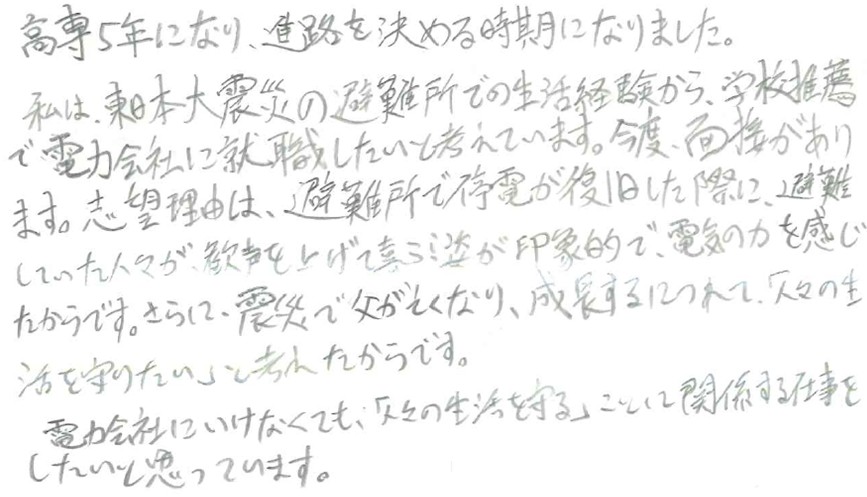 高専5年になり、進路を決める時期になりました。
私は、東日本大震災の避難所での生活経験から、学校推薦
で電力会社に就職したいと考えています。今度、面接があり
ます。志望理由は、避難所で停電が復旧した際に、避難
していた人々が、歓声を上げて喜ぶ姿が印象的で、電気の力を感じ
たからです。さらに、震災で父が亡くなり、成長するにつれて、「人々の生
活を守りたい」と考えたからです。
電力会社にいけなくても、「人々の生活を守る」ことに関係する仕事を
したいと思っています。